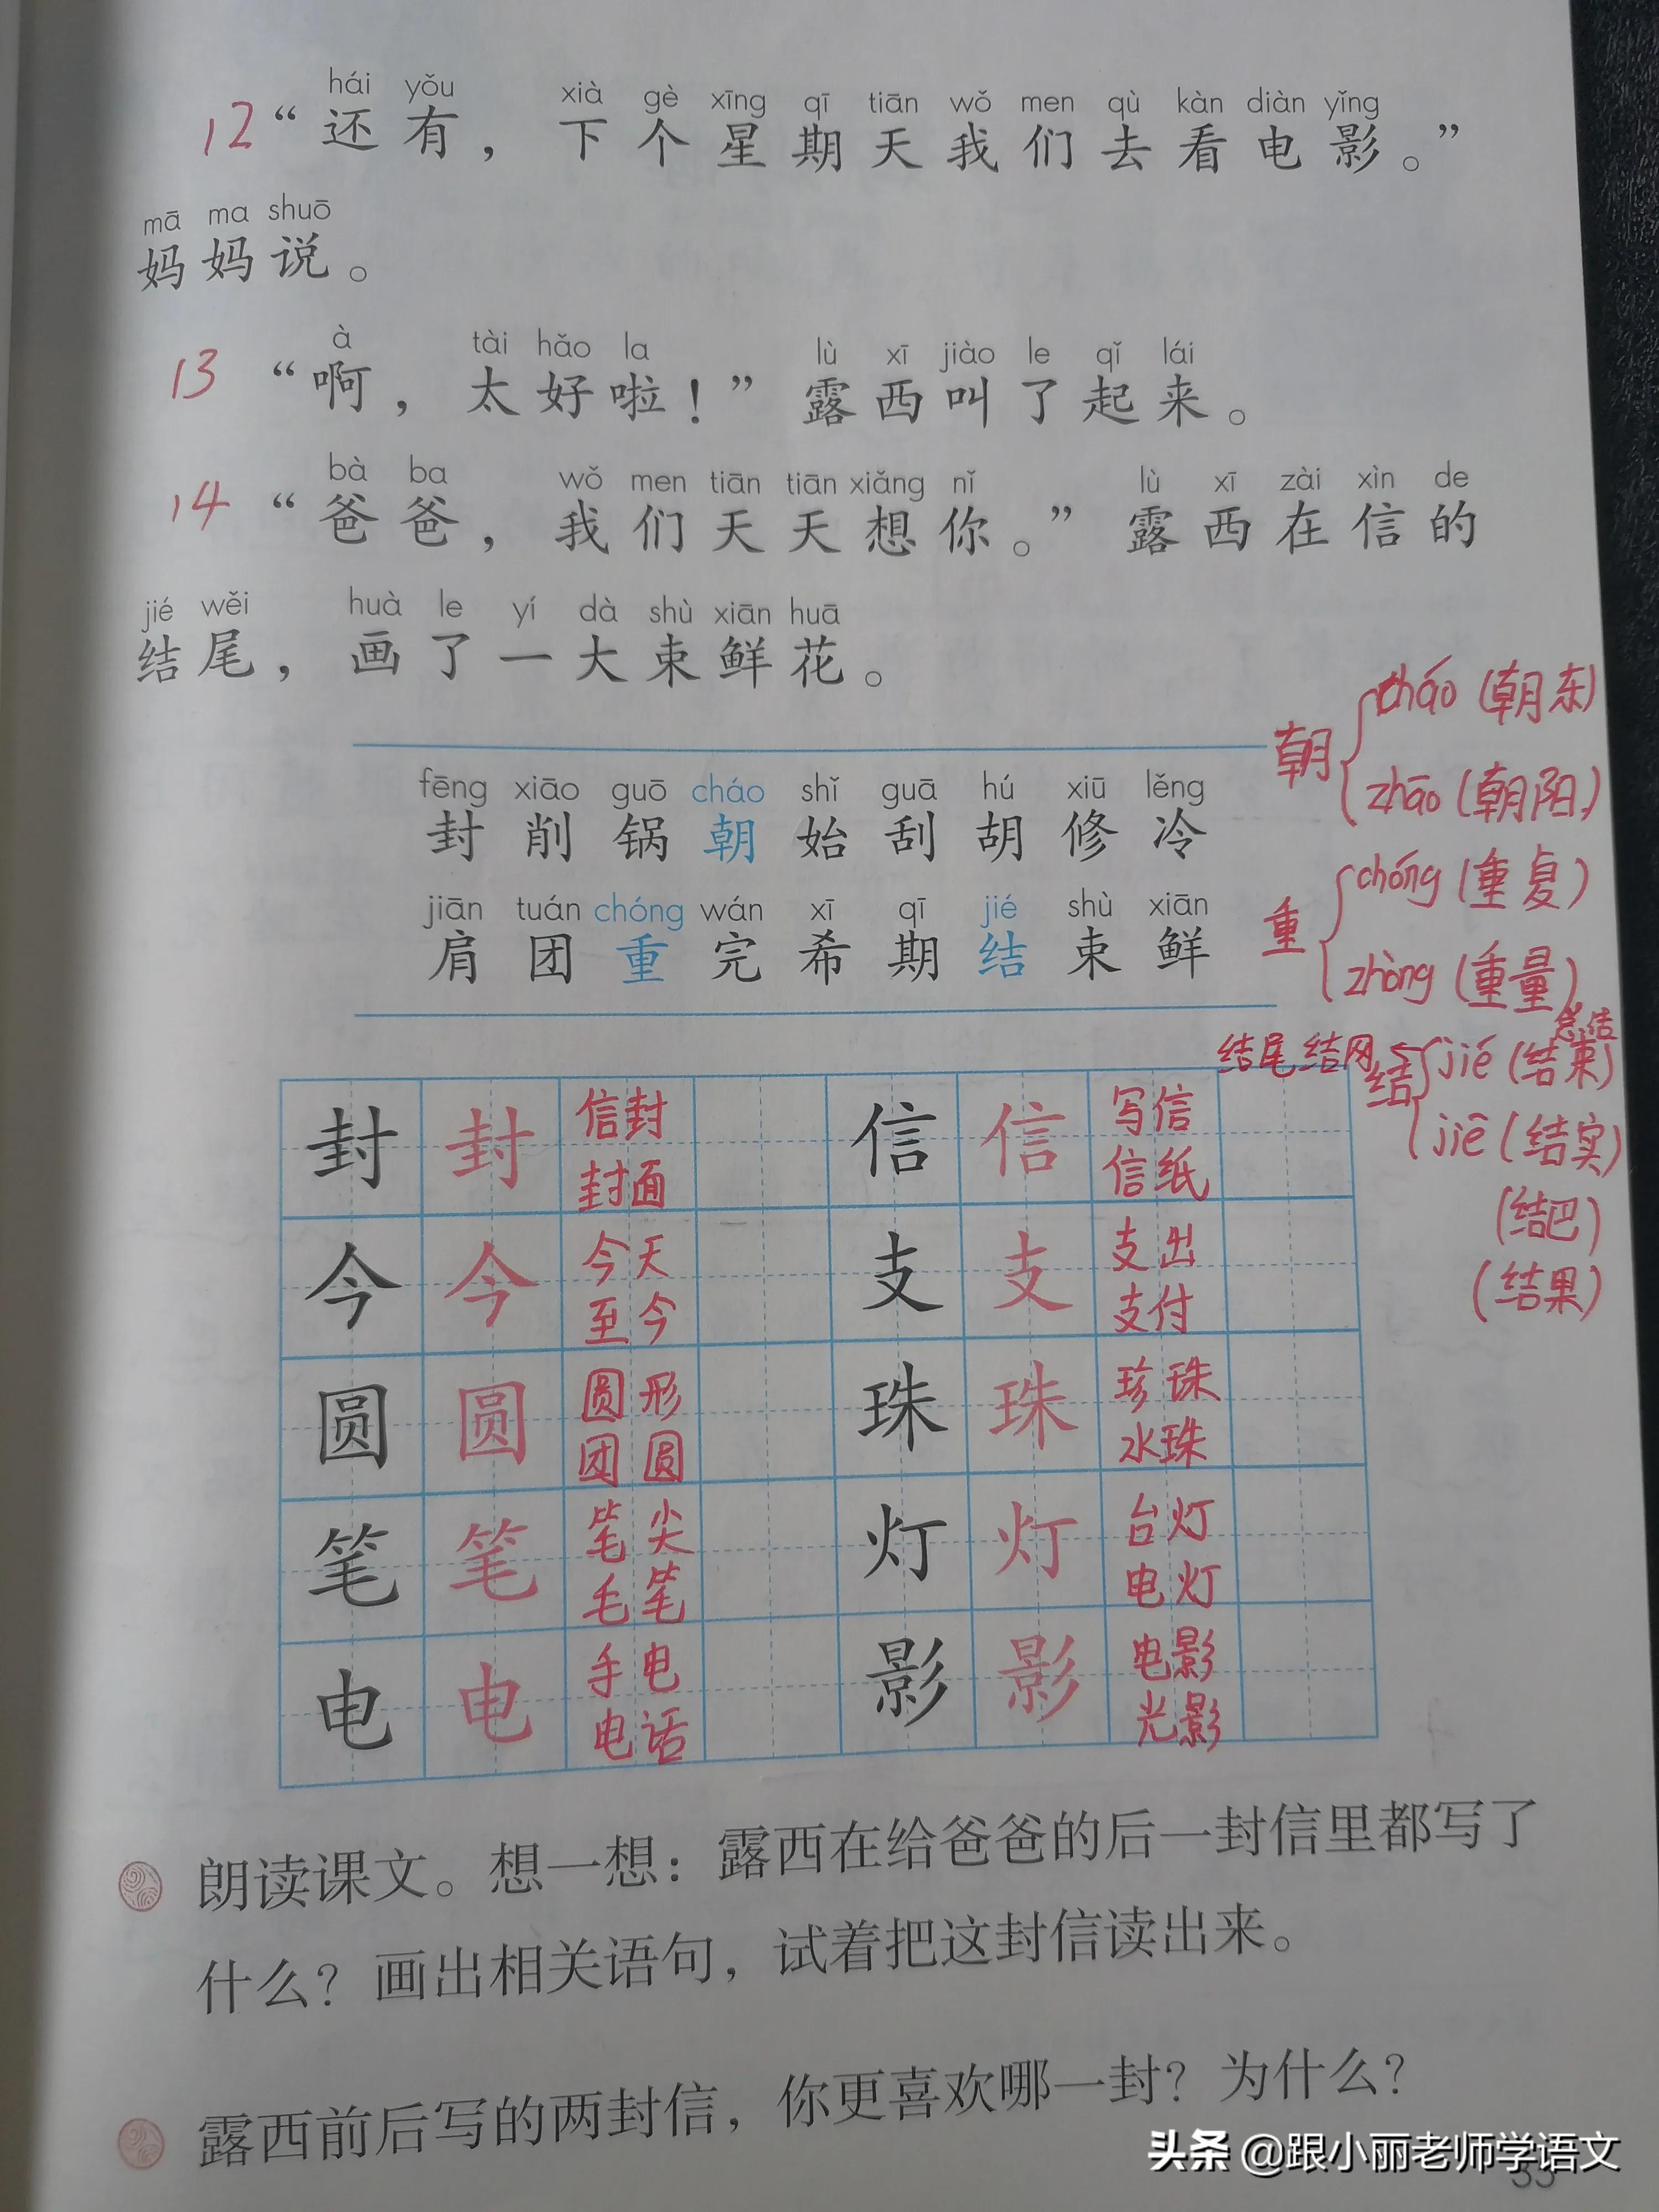 hái yǒu xià gè xīng qī tiān wǒ men qù kàn diàn yǐng
12 “还有，下个星期天我们去看电影。”
mā ma shuō
妈妈说。
à tài hǎo la lù xī jiào le qǐ lái
13 “啊，太好啦！”露西叫了起来。
bà ba wǒ men tiān tiān xiǎng nǐ lù xī zài xìn de
14 “爸爸，我们天天想你。”露西在信的
jié wěi huà le yí dà shù xiān huā
结尾，画了一大束鲜花。
fēng xiāo guō cháo shǐ guā hú xiū lěng
封 削 锅 朝 始 刮 胡 修 冷
jiān tuán chóng wán xī qī jié shù xiān
肩 团 重 完 希 期 结 束 鲜
朝 cháo (朝东)
zhāo (朝阳)
重 chóng (重复)
zhòng (重量)
结尾 结网 结 jié (结束)
总结
jiē (结实)
(结巴)
(结果)
封 封 信封 封面 信 信 写信 信纸
今 今 今天 至今 支 支 支出 支付
圆 圆 圆形 团圆 珠 珠 珍珠 水珠
笔 笔 笔尖 毛笔 灯 灯 台灯 电灯
电 电 手电 电话 影 影 电影 光影
朗读课文。想一想：露西在给爸爸的后一封信里都写了
什么？画出相关语句，试着把这封信读出来。
露西前后写的两封信，你更喜欢哪一封？为什么？
头条 @跟小丽老师学语文